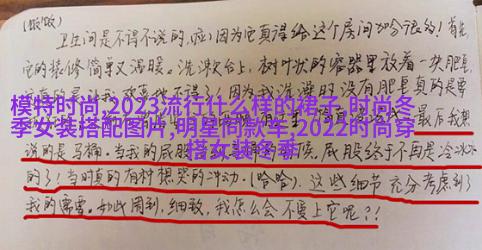 (嗷!嗷)
卫生间是不得不说的,啦!因为它真得给这个房间加分很的!首先,
它的装修简单又温暖。洗漱台上,树叶状的容器里放着一块肥皂,
模特时尚,2023流行什么样的裙子,时尚冬
季女装搭配图片,明星同款车,2022时尚穿
搭女装冬季
最后我想
说的是马桶。当我的屁股
屁股终于不再是冷冰冰
的了!当时真的有种想哭的冲动。(哈哈)。这些细节充分考虑到了
我的需要。如此周到,细致,我怎么会不爱上它呢?!